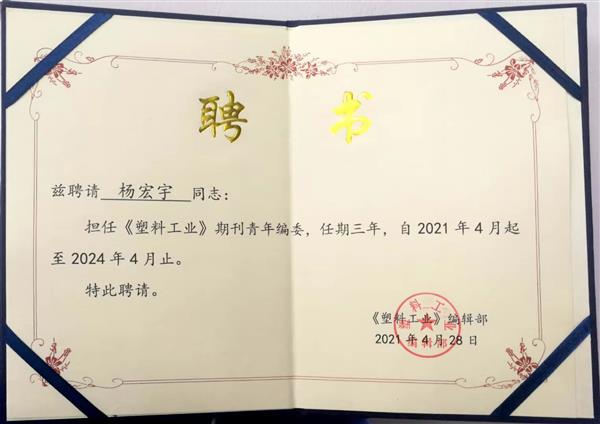 聘书
兹聘请 杨宏宇 同志：
担任《塑料工业》期刊青年编委，任期三年，自 2021 年 4 月起
至 2024 年 4 月止。
特此聘请。
《塑料工业》编辑部
2021 年 4 月 28 日